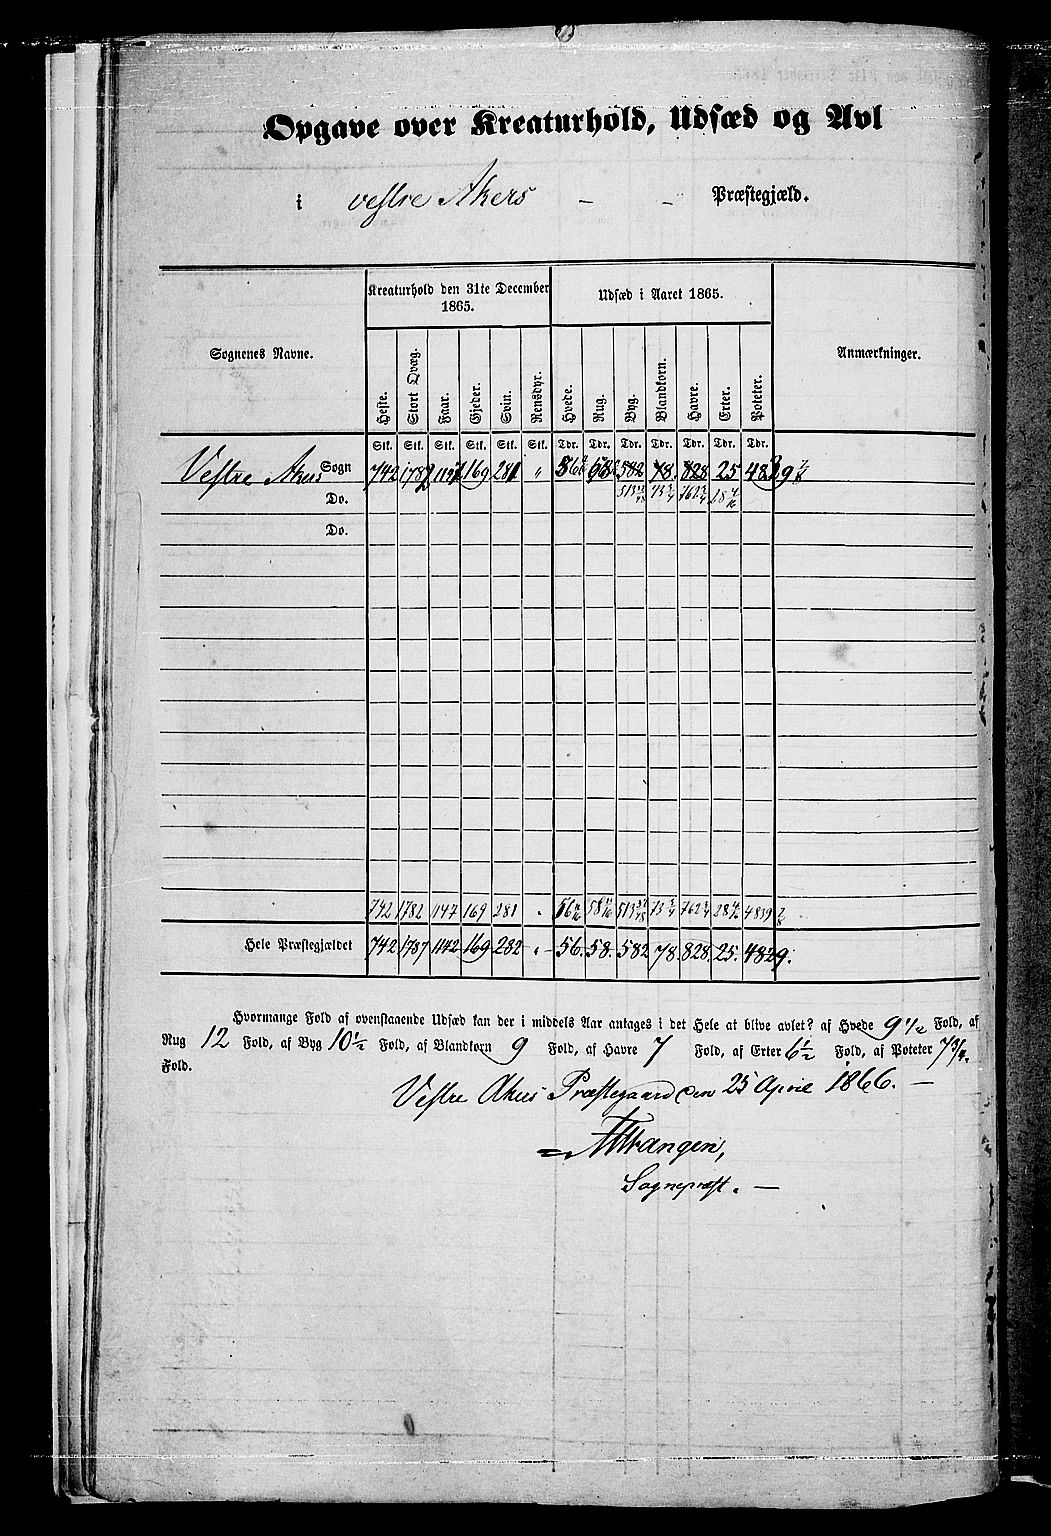 Opgave over Kreaturhold, Udsæd og Avl
i vestre Akers - - Præstegjæld.
Sognenes Navne.
Kreaturhold den 31te December 1865.
Udsæd i Aaret 1865.
Anmærkninger.
Heste. Stort Qvæg. Faar. Gjeder. Svin. Rensdyr. Hvede. Rug. Byg. Blandkorn. Havre. Erter. Poteter.
Stk. Stk. Stk. Stk. Stk. Stk. Tdr. Tdr. Tdr. Tdr. Tdr. Tdr. Tdr.
Vestre Akers Sogn 742 1782 1147 169 281 " 56 58 582 78. 828 25 4839 7/8
Do. 73 3/4 762 3/4
Do.
742 1782 1147 169 281 " 56 58 513 73 3/4 762 3/4 28 4839 7/8
Hele Præstegjældet 742 1787 1142 169 282 " 56. 58. 582 78. 828. 25. 4829.
Hvormange Fold af ovenstaaende Udsæd kan der i middels Aar antages i det Hele at blive avlet? af Hvede 9 1/2 Fold, af
Rug 12 Fold, af Byg 10 1/2 Fold, af Blandkorn 9 Fold, af Havre 7 Fold, af Erter 6 1/2 Fold, af Poteter 7 3/4.
Fold.
Vestre Akers Præstegaard den 25 April 1866. -
Sognepræst. -